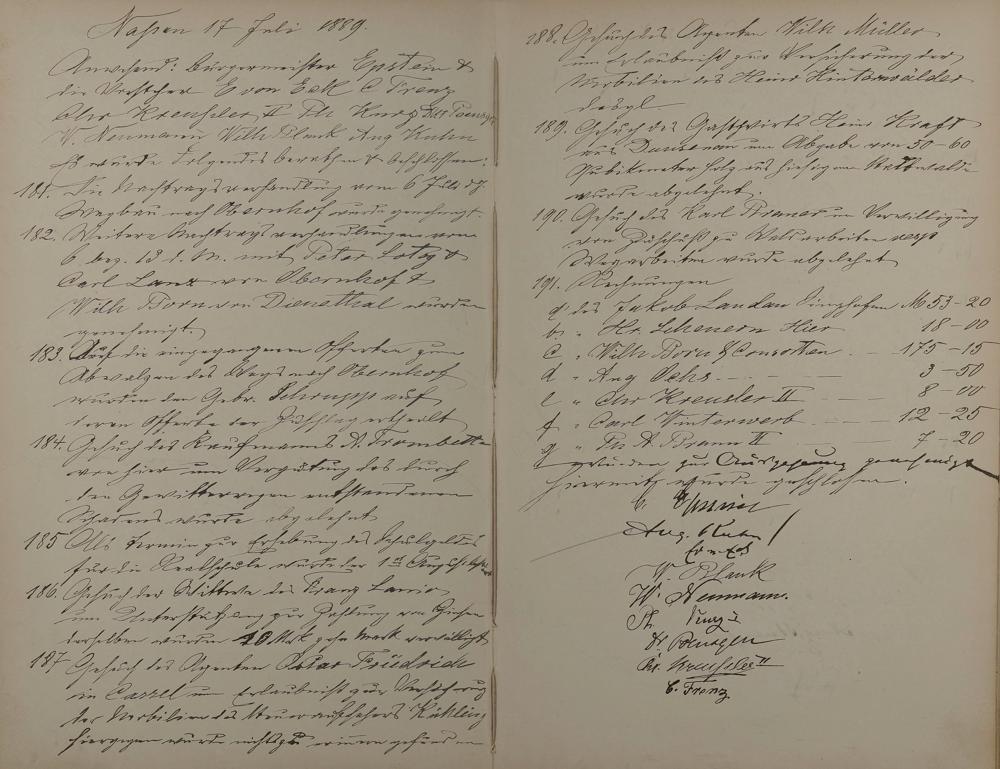 Nassau 17 Juli 1889.
Anwesend: Bürgermeister Epstein &
die Vorsteher E von Eck C Frenz
Chr Kreusler II Ph Kurz Dr Poensgen
W. Neumann Wilh Plank Aug Kuhn
Es wurde Folgendes berathen & beschlossen:
181. Die Nachtragsverhandlung vom 6 Juli d J.
Wegbau nach Obernhof wurde genehmigt.
182. Weitere Nachtragsverhandlungen vom
6 bez. 13 l. M. mit Peter Lotz &
Carl Lanz von Obernhof &
Wilh Born von Dienethal wurden
genehmigt.
183. Auf die eingegangenen Offerten zum
Abwalzen des Wegs nach Obernhof
wurden den Gebr. Schrupp auf
deren Offerte der Zuschlag ertheilt
184. Gesuch des Kaufmanns A. Trombetta
von hier um Vergütung des durch
den Gewitterregen entstandenen
Schadens wurde abgelehnt
185 Als Termin zur Erhebung des Schulgeldes
für die Realschule wurde der 1st August
186. Gesuch der Wittwe des Franz Lanio
um Unterstützung zur Zahlung von
derselben wurden 10 Mk zehn Mark verwilligt
187 Gesuch des Agenten Oskar Friedrich
in Cassel um Erlaubniß zur Versicherung
der Mobilien des Steueraufsehers Kühling
hiergegen wurde nichts zu erinnern gefunden
188. Gesuch des Agenten Wilh Müller
um Erlaubniß zur Versicherung der
Mobilien des Heinr Hinterwälder
desgl.
189. Gesuch des Gastwirts Heinr Kraft
aus Dausenau um Abgabe von 50-60
Kubikmeter Holz aus hiesigem Stadtwalde
wurde abgelehnt.
190. Gesuch des Karl Braner um Verwilligung
von Zuschuß zu Waldarbeiten resp
Wegarbeiten wurde abgelehnt
191. Rechnungen
a des Jakob Landau Singhofen M 53-20
b. " Hr. Scheuern Hier 18-00
c. " Wilh Born & Consorten 175-15
d " Aug Ochs 3-50
e " Chr Kreusler II 8-00
f " Carl Winterwerb 12-25
g " Ph. H. Braun II 7-20
wurden zur Auszahlung genehmigt
Hiermit wurde geschlossen.
Aug. Kuhn
W Plank
W. Neumann.
Ph. Kurz
Dr. Poensgen
Chr. Kreusler II
C. Frenz.